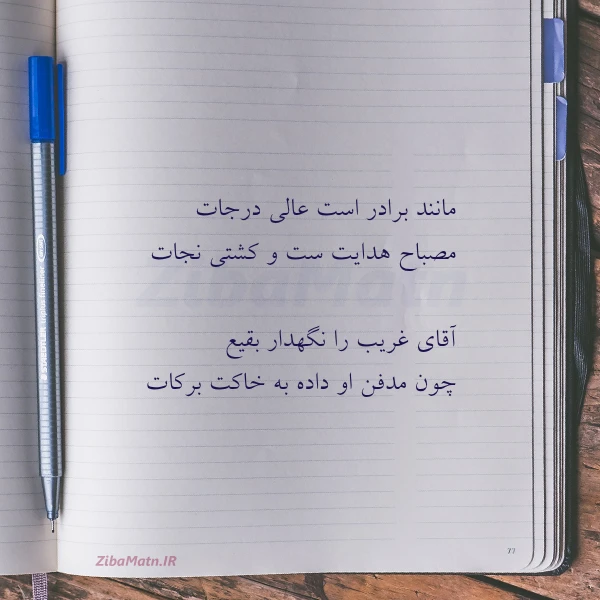 مانند برادر است عالی درجات
مصباح هدایت ست و کشتی نجات
آقای غریب را نگهدار بقیع
چون مدفن او داده به خاکت برکات
ZibaMatn.IR
77